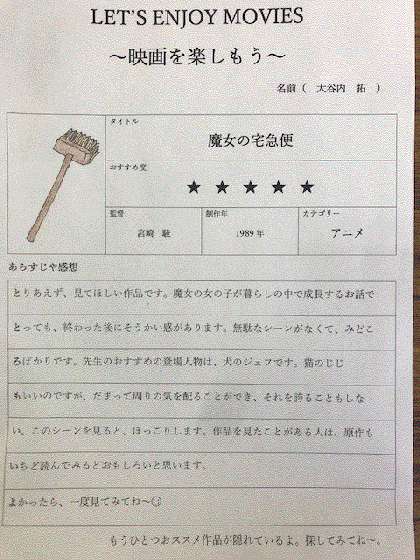 LET'S ENJOY MOVIES
～映画を楽しもう～
名前（ 大谷内 拓 ）
タイトル
魔女の宅急便
おすすめ度
★ ★ ★ ★ ★
監督
宮崎 駿
制作年
1989 年
カテゴリー
アニメ
あらすじや感想
とりあえず、見てほしい作品です。魔女の女の子が暮らしの中で成長するお話で
とっても、終わった後にそうかい感があります。無駄なシーンがなくて、みどこ
ろばかりです。先生のおすすめの登場人物は、犬のジェフです。猫のじじ
もいいのですが、だまって周りの気を配ることができ、それを誇ることもしな
い。このシーンを見ると、ほっこりします。作品を見たことがある人は、原作も
いちど読んでみるとおもしろいと思います。
よかったら、一度見てみてね～
もうひとつおススメ作品が隠れているよ。探してみてね～。